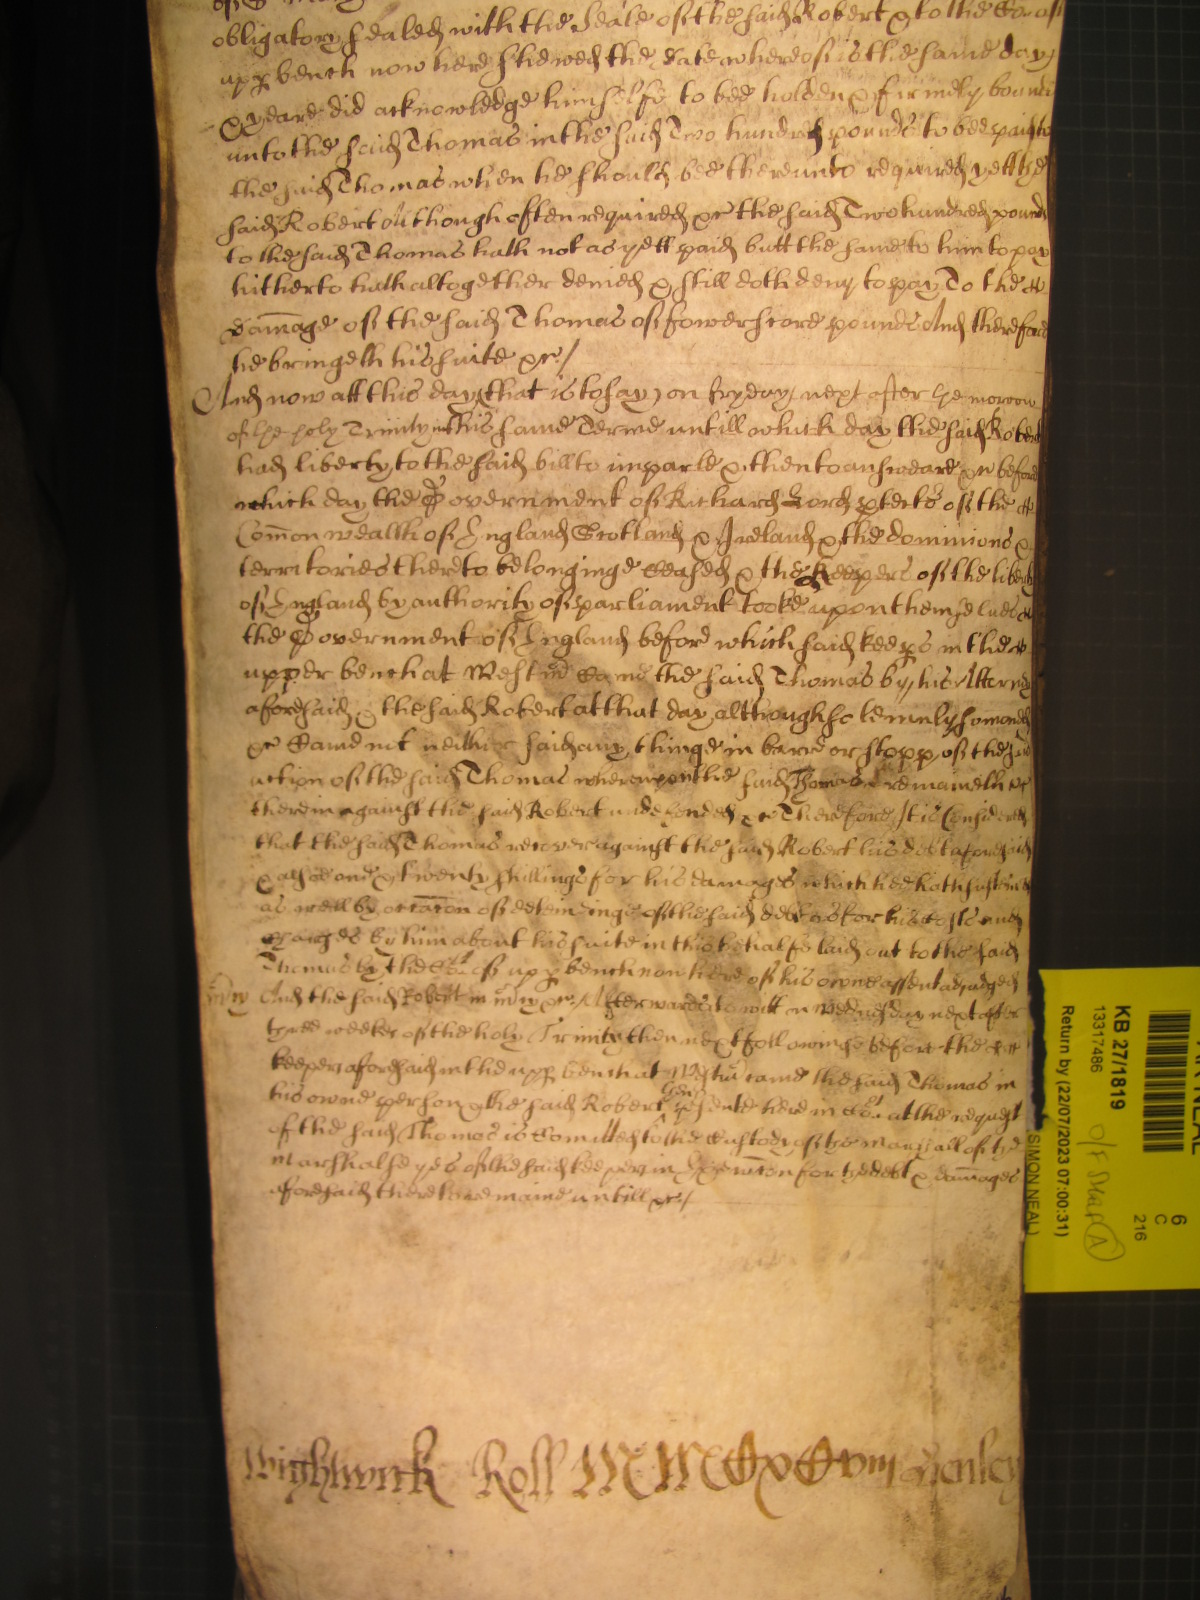 obligatory sealed with the Seale of the said Robert & to the Court of
upp bench now here shewed the date whereof is the same day
& yeare did acknowledge himselfe to bee holden & firmely bound
unto the said Thomas in the said Two hundred pounds to bee paid to
the said Thomas when he should bee thereunto required yett the
said Robert Although often required &c the said Two hundred pounds
to the said Thomas hath not as yett paid butt the same to him to pay
hitherto hath altogether denied & still doth deny to pay To the
damage of the said Thomas of fower score pounds And therefore
he bringeth his suite &c/
And now att this day (that is to say) on fryday next after the morrow
of the holy Trinity in this same Terme untill which day the said Robert
had liberty to the said bill to imparle & then to answeare &c before
which day the Government of Richard Lord ptector of the
Comon wealth of England Scotland & Ireland & the dominions &
territories thereto belonginge Ceased & the Keepers of the liberty
of England by authority of parliament tooke upon themselves
the Government of England before which said keeps in the
upper bench at Westm Came the said Thomas by his Attorney
aforesaid & the said Robert at that day although solemnly somoned
&c Came not neither said any thinge in barre or stopp of the said
action of the said Thomas whereupon the said Thomas remaineth
therein against the said Robert undefended &c Therefore It is Considered
that the said Thomas recover against the said Robert his debt aforesaid
& alsoe one & twenty shillings for his damages which hee hath susteined
as well by occacon of deteininge of the said debt as for his Costs and
Charges by him about his suite in this behalfe laid out to the said
Thomas by the Court of upp bench now here of his owne assent adjudged
And the said Robert in mcy &c/ Afterwards to witt on Wednesday next after
three weekes of the holy Trinity then next followinge before the
keepers aforesaid in the upp bench at Westm came the said Thomas in
his owne person & the said Robert being psente here in Court at the request
of the said Thomas is Comitted to the Custody of the marshall of the
marshalseyes of the said keepers in Execucon for the debt & damages
aforesaid there to remaine untill &c/
Wightwick Roll MMCxCviii Henley
KB 27/1819
13317486
Return by (22/07/2023 07:00:31)
SIMON NEAL)
6
C
216
A